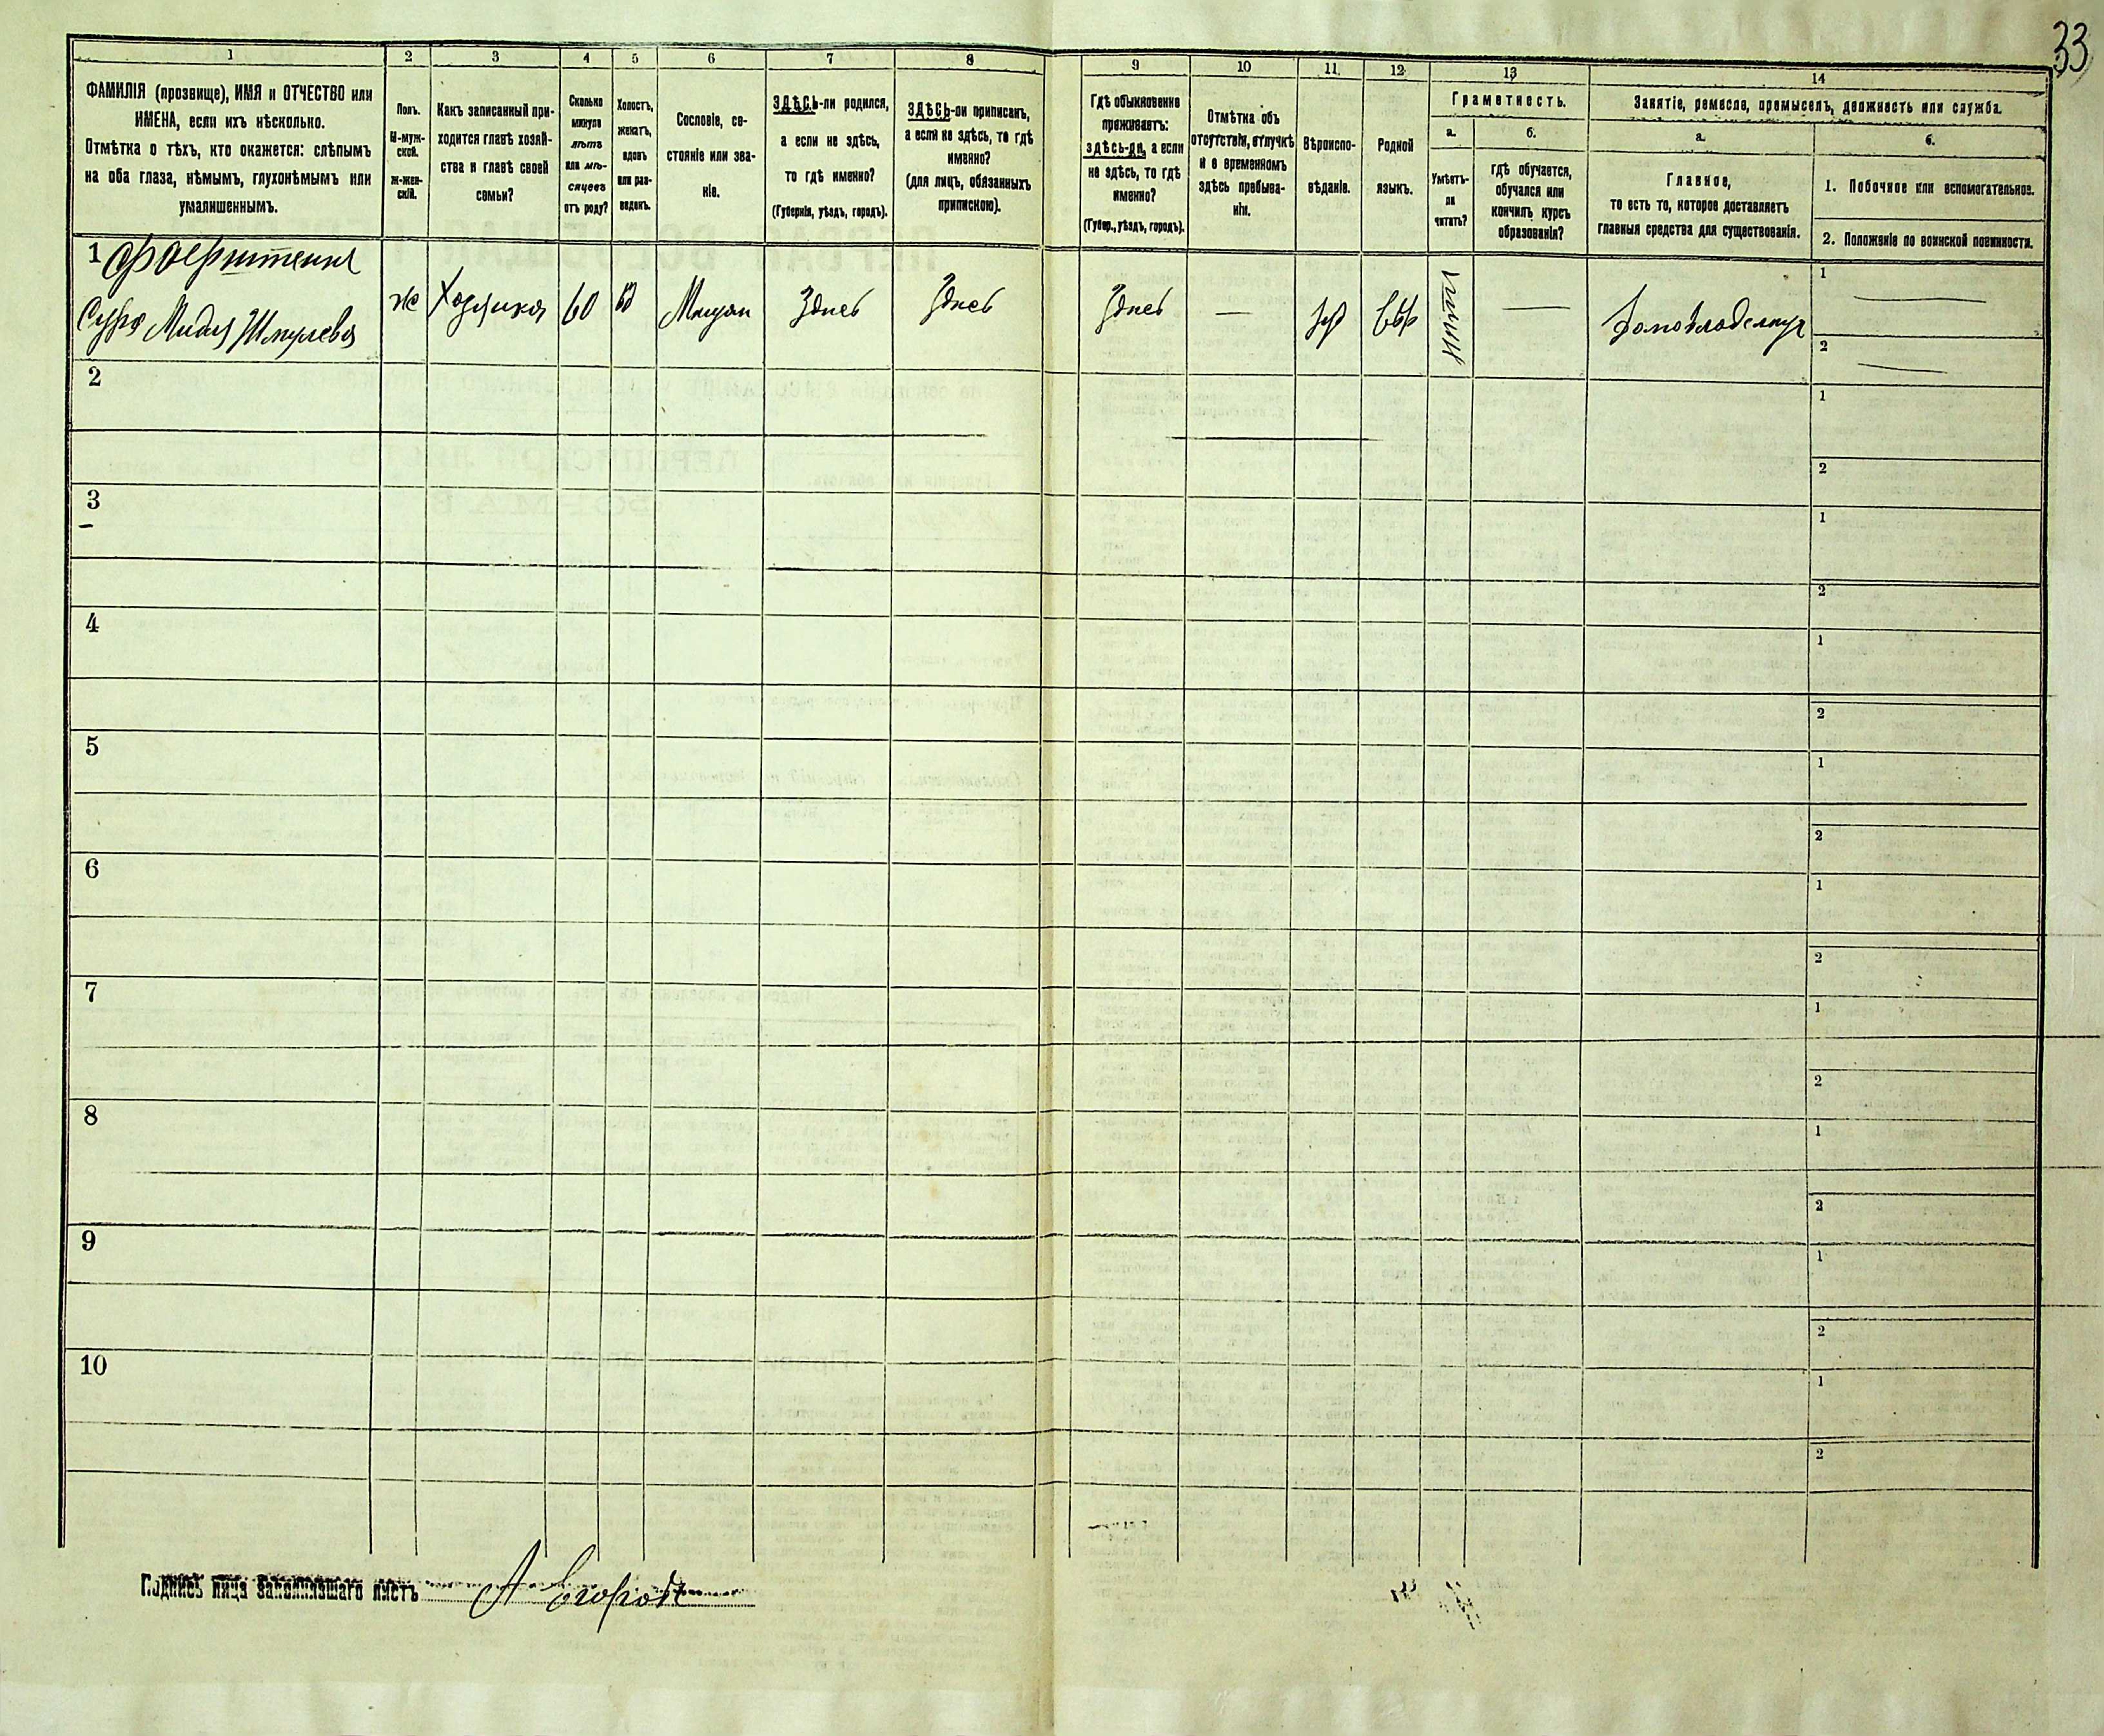 33
1 2 3 4 5 6 7 8 9 10 11. 12 13 14
ФАМИЛІЯ (прозвище), ИМЯ и ОТЧЕСТВО или
ИМЕНА, если ихъ нѣсколько.
Отмѣтка о тѣхъ, кто окажется: слѣпымъ
на оба глаза, нѣмымъ, глухонѣмымъ или
умалишеннымъ.
Полъ.
М-муж-
ской.
Ж-жен-
скій.
Какъ записанный при-
ходится главѣ хозяй-
ства и главѣ своей
семьи?
Сколько
минуло
лѣтъ
или мѣ-
сяцевъ
отъ роду?
Холостъ,
женатъ,
вдовъ
или раз-
веденъ.
Сословіе, со-
стояніе или зва-
ніе.
ЗДѢСЬ-ли родился,
а если не здѣсь,
то гдѣ именно?
(Губернія, уѣздъ, городъ).
ЗДѢСЬ-ли приписанъ,
а если не здѣсь, то гдѣ
именно?
(для лицъ, обязанныхъ
припискою).
Гдѣ обыкновенно
проживаетъ:
здѣсь-ли, а если
не здѣсь, то гдѣ
именно?
(Губер., уѣздъ, городъ).
Отмѣтка объ
отсутствіи, отлучкѣ
и о временномъ
здѣсь пребыва-
ніи.
Вѣроиспо-
вѣданіе.
Родной
языкъ.
Грамотность.
а.
Умѣетъ-
ли
читать?
б.
гдѣ обучается,
обучался или
кончилъ курсъ
образованія?
Занятіе, ремесло, промыселъ, должность или служба.
а.
Главное,
то есть то, которое доставляетъ
главныя средства для существованія.
б.
1. Побочное или вспомогательное.
2. Положеніе по воинской повинности.
1
ж Хозяйка 60 вд Мещан Здесь Здесь Здесь — — Домовладелица
1 —
2 —
2
1
2
3
1
2
4
1
2
5
1
2
6
1
2
7
1
2
8
1
2
9
1
2
10
1
2
Подпись лица заполнившаго листъ А Егоров